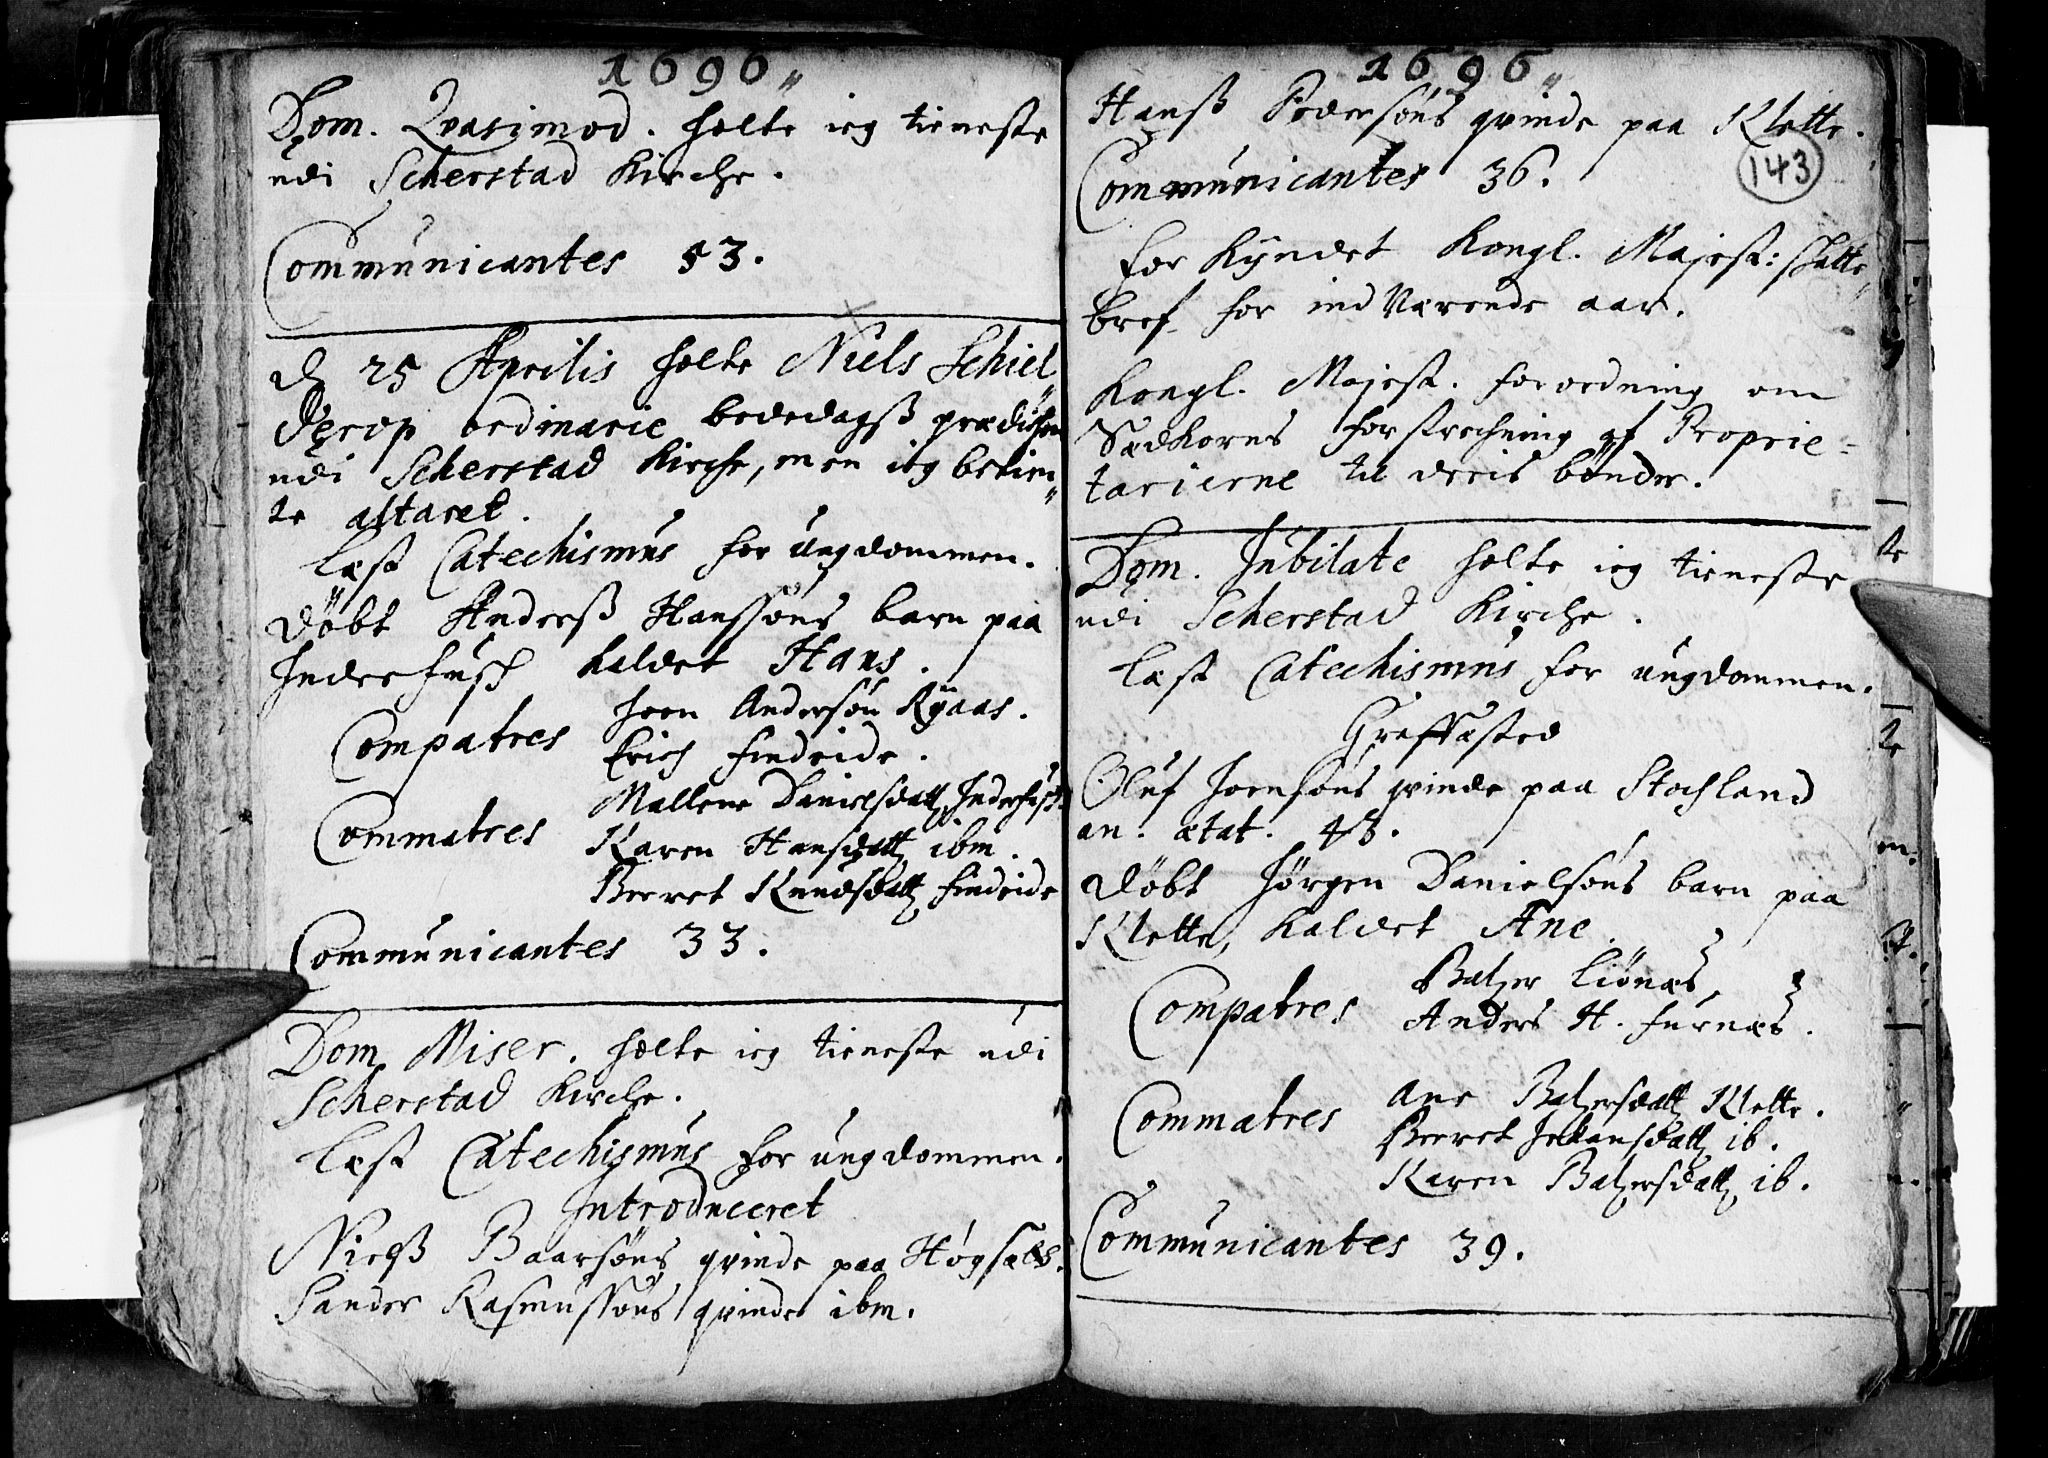 1696
Dom. Qvasimod. holte ieg tieneste
udi Scherstad Kirche.
Communicantes 53.
d 25 Aprilis holte Niels Schiel
derop ordinarie bededagsß prædichen
udi Scherstad Kirche, men ieg betien
te altaret.
læst Catechismus for ungdommen.
Døbt Anderß Hanssøns barn paa
Inderhusß kaldet Hans.
Compatres Joen Andersøn Ryaas.
Erich Findeide.
Commatres Mallene Danielsdatt Inderhuß
Karen Hansdatt ibm.
Beeret Knudsdatt Findeide
Communicantes 33.
Dom Miser. holte ieg tieneste udi
Scherstad Kirche.
læst Catechismus for ungdommen.
Introduceret
Nielß Baarsøns qvinde paa Høgsæt
Sander Rasmussøns qvinde ibm.
1696
Hanß Pedersøns qvinde paa Klette.
143
Communicantes 36.
forkyndet Kongl. Majest: skatte
bref for indværende aar.
Kongl. Majest. forordning om
Sædkorns forstrechning af Proprie=
tarierne til deris bønder.
Dom. Jubilate holte ieg tieneste
udi Scherstad Kirche.
læst Catechismus for ungdommen.
Greffæsted
Oluf Joensøns qvinde paa Stochland
an. ætat. 48.
Døbt Jørgen Danielsøns barn paa
Klette, kaldet Ane.
Compatres Baltzer Liønæs,
Anders H. Furnæs.
Commatres Ane Baltzersdatt Klette.
Beeret Johansdatt ib.
Karen Baltzersdatt ib.
Communicantes 39.